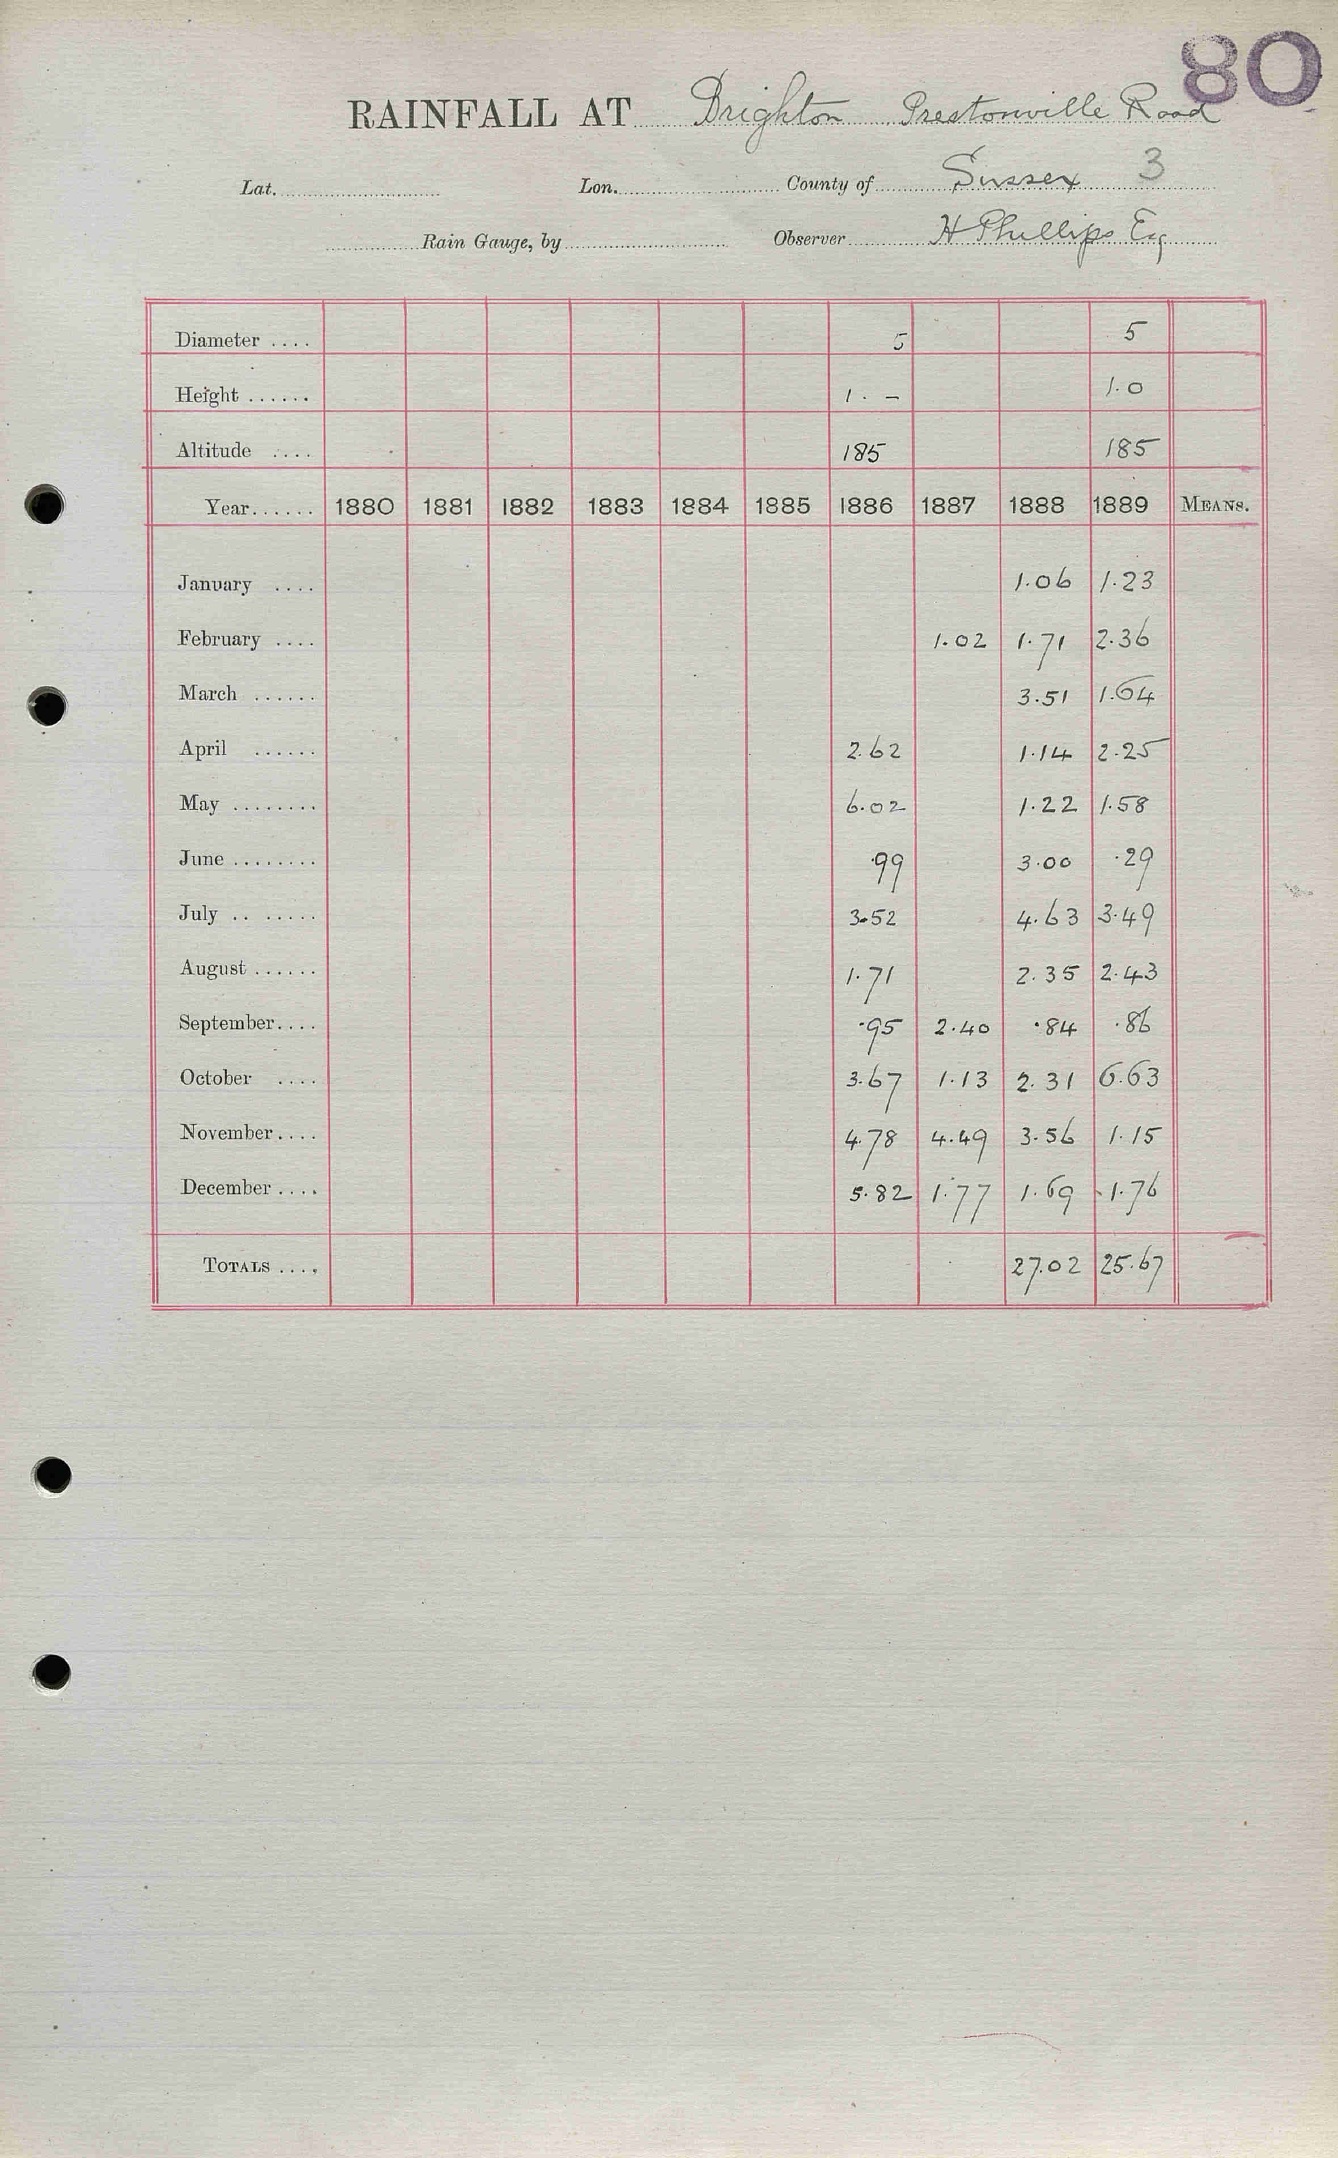 80
RAINFALL AT Brighton Prestonville Road
Lat. Lon. County of Sussex 3
Rain Gauge, by Observer H Phillips Esq
Diameter .... 5 5
Height ...... 1. – 1.0
Altitude .... 185 185
Year...... 1880 1881 1882 1883 1884 1885 1886 1887 1888 1889 MEANS.
January .... 1.06 1.23
February .... 1.02 1.71 2.36
March ...... 3.51 1.64
April ...... 2.62 1.14 2.25
May ........ 6.02 1.22 1.58
June ........ .99 3.00 .29
July .. ..... 3.52 4.63 3.49
August ...... 1.71 2.35 2.43
September.... .95 2.40 .84 .86
October .... 3.67 1.13 2.31 6.63
November.... 4.78 4.49 3.56 1.15
December .... 5.82 1.77 1.69 1.76
TOTALS .... 27.02 25.67